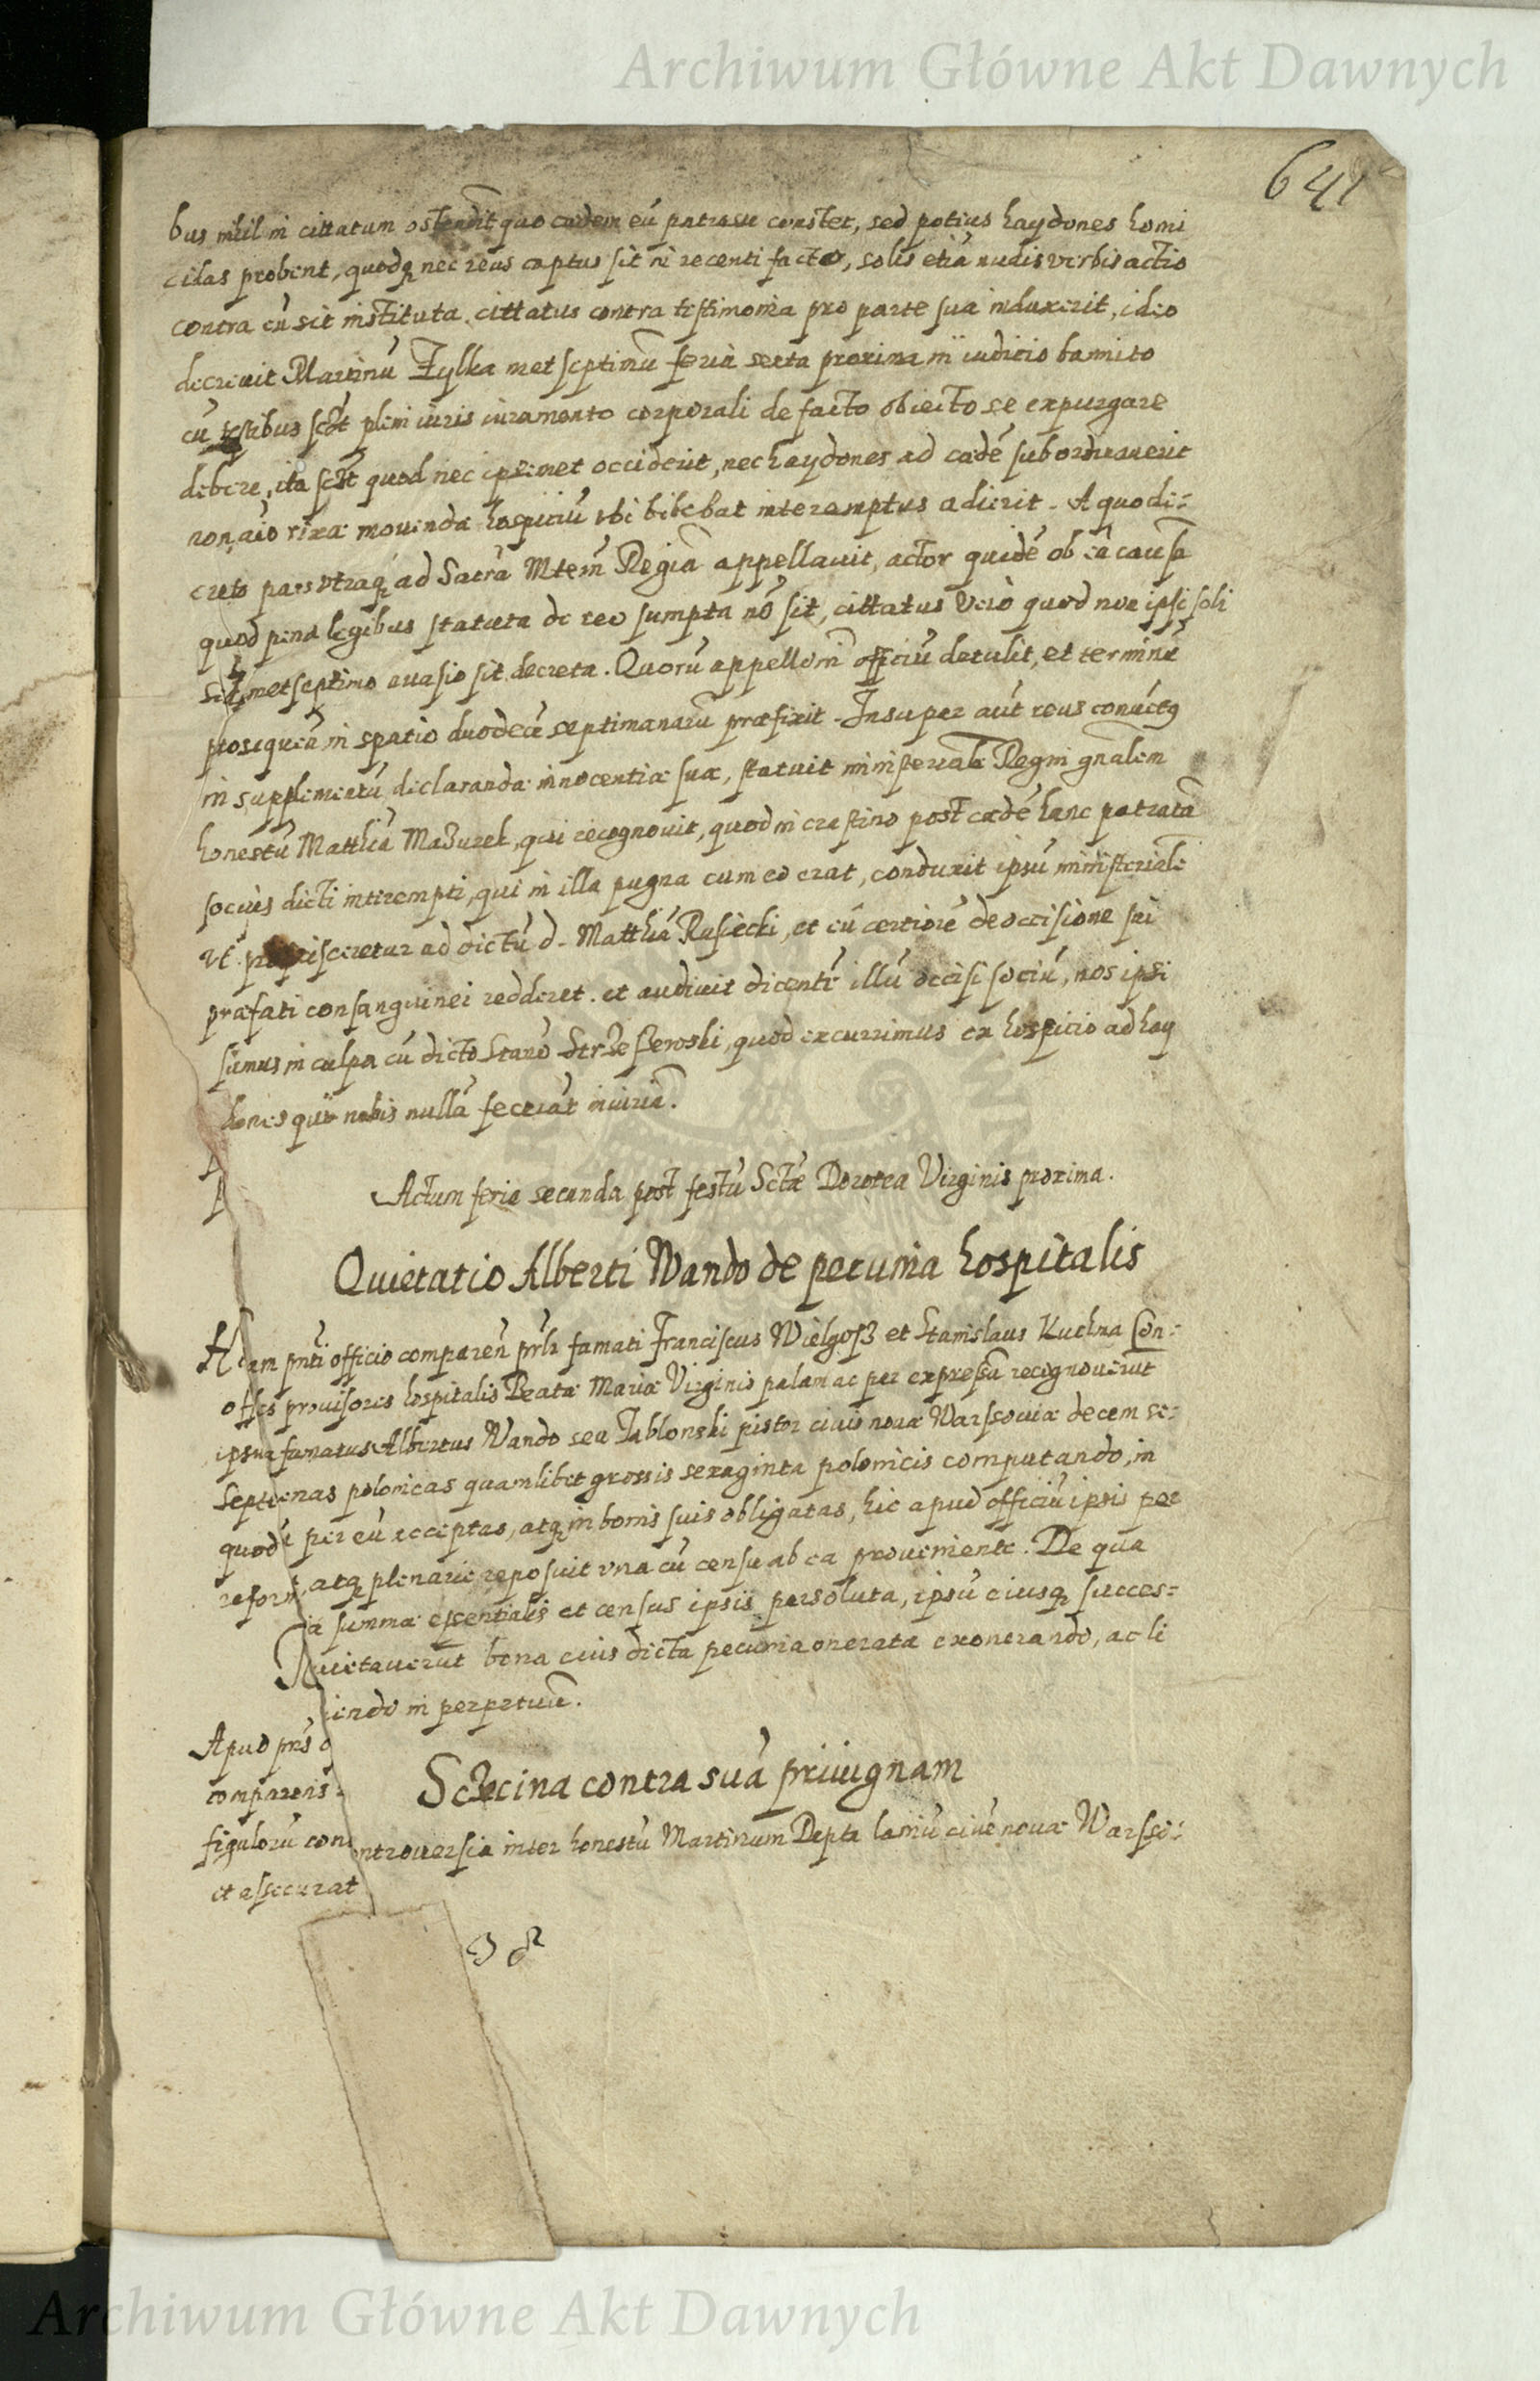 Archiwum Główne Akt Dawnych
641
bus nihil in cittatum ostendit quo cædem eũ patrasse constet, sed potius haydones homi
cidas probent, quodq; nec reus captus sit in recenti facto, solis etiã nudis verbis actio
contra eũ sit instituta, cittatus contra testimonia pro parte sua induxerit, ideo
decrevit Martinũ Fylka metseptimũ feria sexta proxima in iudicio bannito
cũ testibus sclt pleni iuris iuramento corporali de facto obiecto se expurgare
debere, ita sclt quod nec ipsemet occiderit, nec haydones ad cædẽ subordinaverit
non aĩo rixæ movendæ hospiciũ vbi bibebat interemptus adierit. A quo de:
creto pars vtraq; ad Sacrã Mtem Regiã appellavit, actor quidẽ ob eã causã
quod pena legibus statuta de reo sumpta nõ sit, cittatus verò quod non ipsi soli
sed metseptimo evasio sit decreta. Quorũ appellõni officiũ detulit, et terminũ
prosequẽdi in spatio duodecẽ septimanarũ præfixit. Insuper aũt reus convictq
in supplementũ declarandæ innocentiæ suæ, statuit ministerialẽ Regni gnalem
honestũ Matthiã Mazurek, qui recognovit, quod in crastino post cædẽ hanc patratã
socius dicti interempti, qui in illa pugna cum eo erat, conduxit ipsũ ministerialẽ
vt proficisceretur ad dictũ d. Matthiã Rusiecki, et eũ certiorẽ de occisione sui
præfati consanguinei redderet. et audivit dicentẽ illũ occisi sociũ, nos ipsi
sumus in culpa cũ dicto Stanõ Strzeszewski, quod excurrimus ex hospicio ad hay
dones qui nobis nullã fecerãt iniuriã.
Actum feria secunda post festũ Sctæ Dorotea Virginis proxima.
Quietatio Alberti Wando de pecunia hospitalis
am pnti officio comparen prlr famati Franciscus Wielgosz et Stanislaus Kuchna Con:
provisores hospitalis Beatæ Mariæ Virginis palam ac per expressã recognoverũt
famatus Albertus Wando seu Jablonski pistor civis novæ Warssoviæ decem se:
nas polonicas quamlibet grossis sexaginta polonicis computando, in
per eũ receptas, atq; in bonis suis obligatas, hic apud officiũ ipsis per
atq; plenarie reposuit vna cũ censu ab ea proveniente. De qua
summæ essentialis et census ipsis persoluta, ipsũ eiusq; succes:
quietaverũt bona eius dicta pecunia onerata exonerando, ac li
in perpetuũ.
Apud pns o
comparens
figulorũ con
et assecurat
Sczecina contra suã privignam
ntroversia inter honestũ Martinum Depta laniũ civẽ novæ Warsso:
Archiwum Główne Akt Dawnych